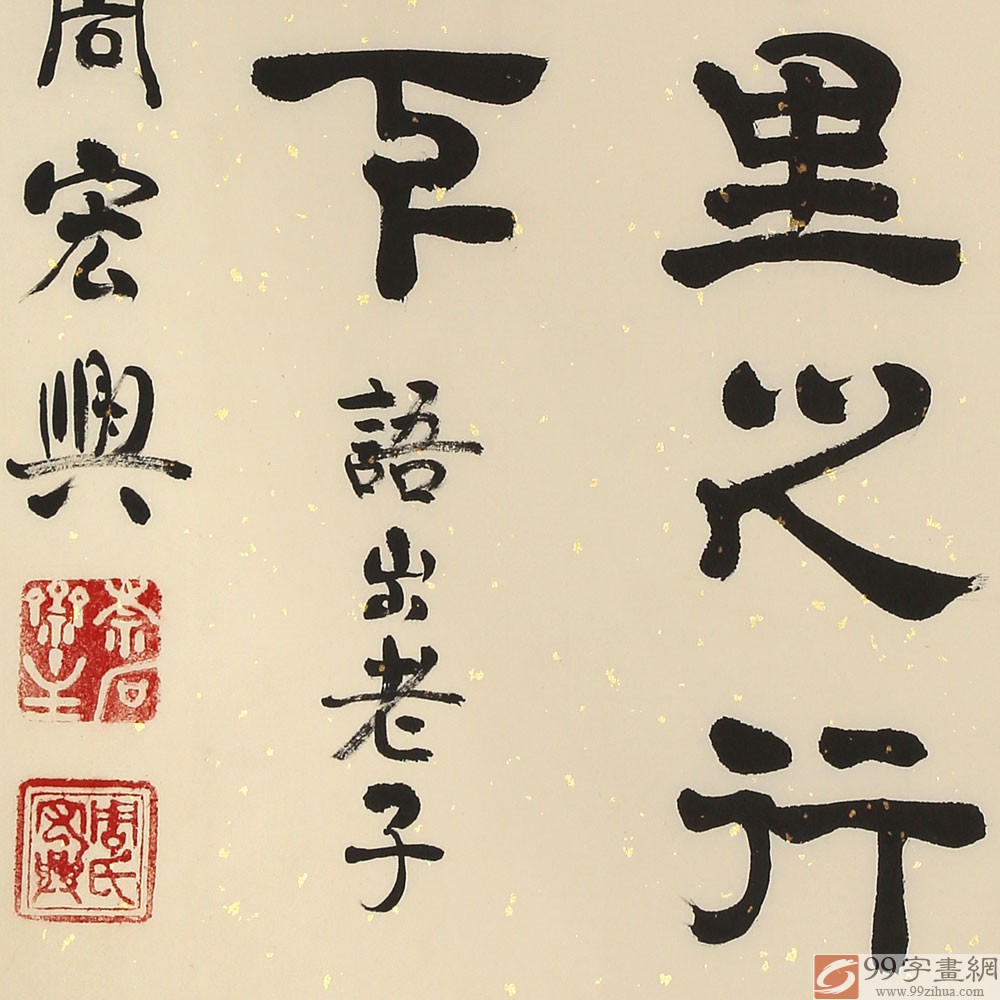 里之行
下 語出老子
周宏興
周氏宏興
99字畫網
www.99zihua.com